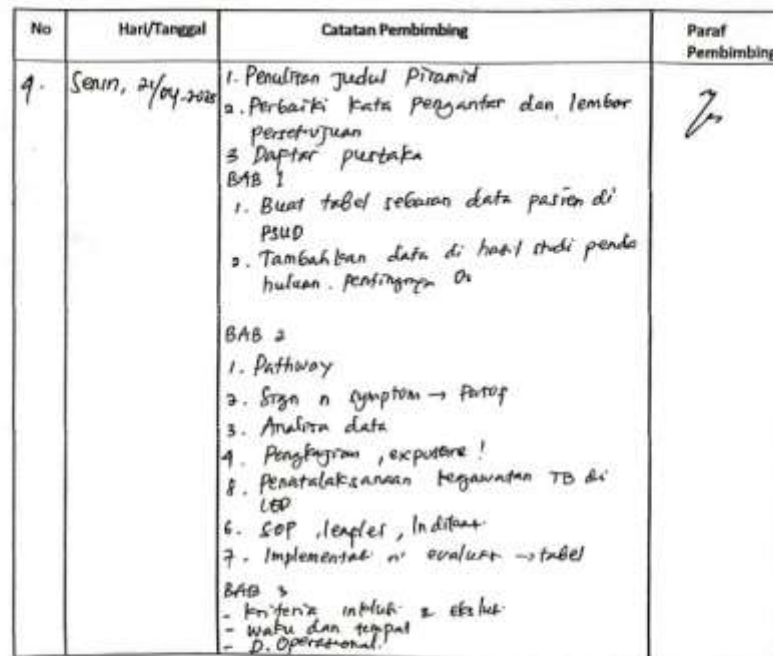 No
Hari/Tanggal
Catatan Pembimbing
Paraf
Pembimbing
9.
Senin, 21/04-2025
1. Penulisan Judul Piramid
2. Perbaiki kata pengantar dan lembar
persetujuan
3 Daftar pustaka
BAB 1
1. Buat tabel sebaran data pasien di
RSUD
2. Tambahkan data di hasil studi penda
huluan. Pentingnya O2
BAB 2
1. Pathway
2. Sign n symptom →
3. Analisa data
4. Pengkajian, exposure!
5. Penatalaksanaan kegawatan TB di
IGD
6. SOP, leaflet,
7. Implementasi n' evaluasi → tabel
BAB 3
- kriteria inklusi & ekslusi
- waktu dan tempat
- D. Operasional.